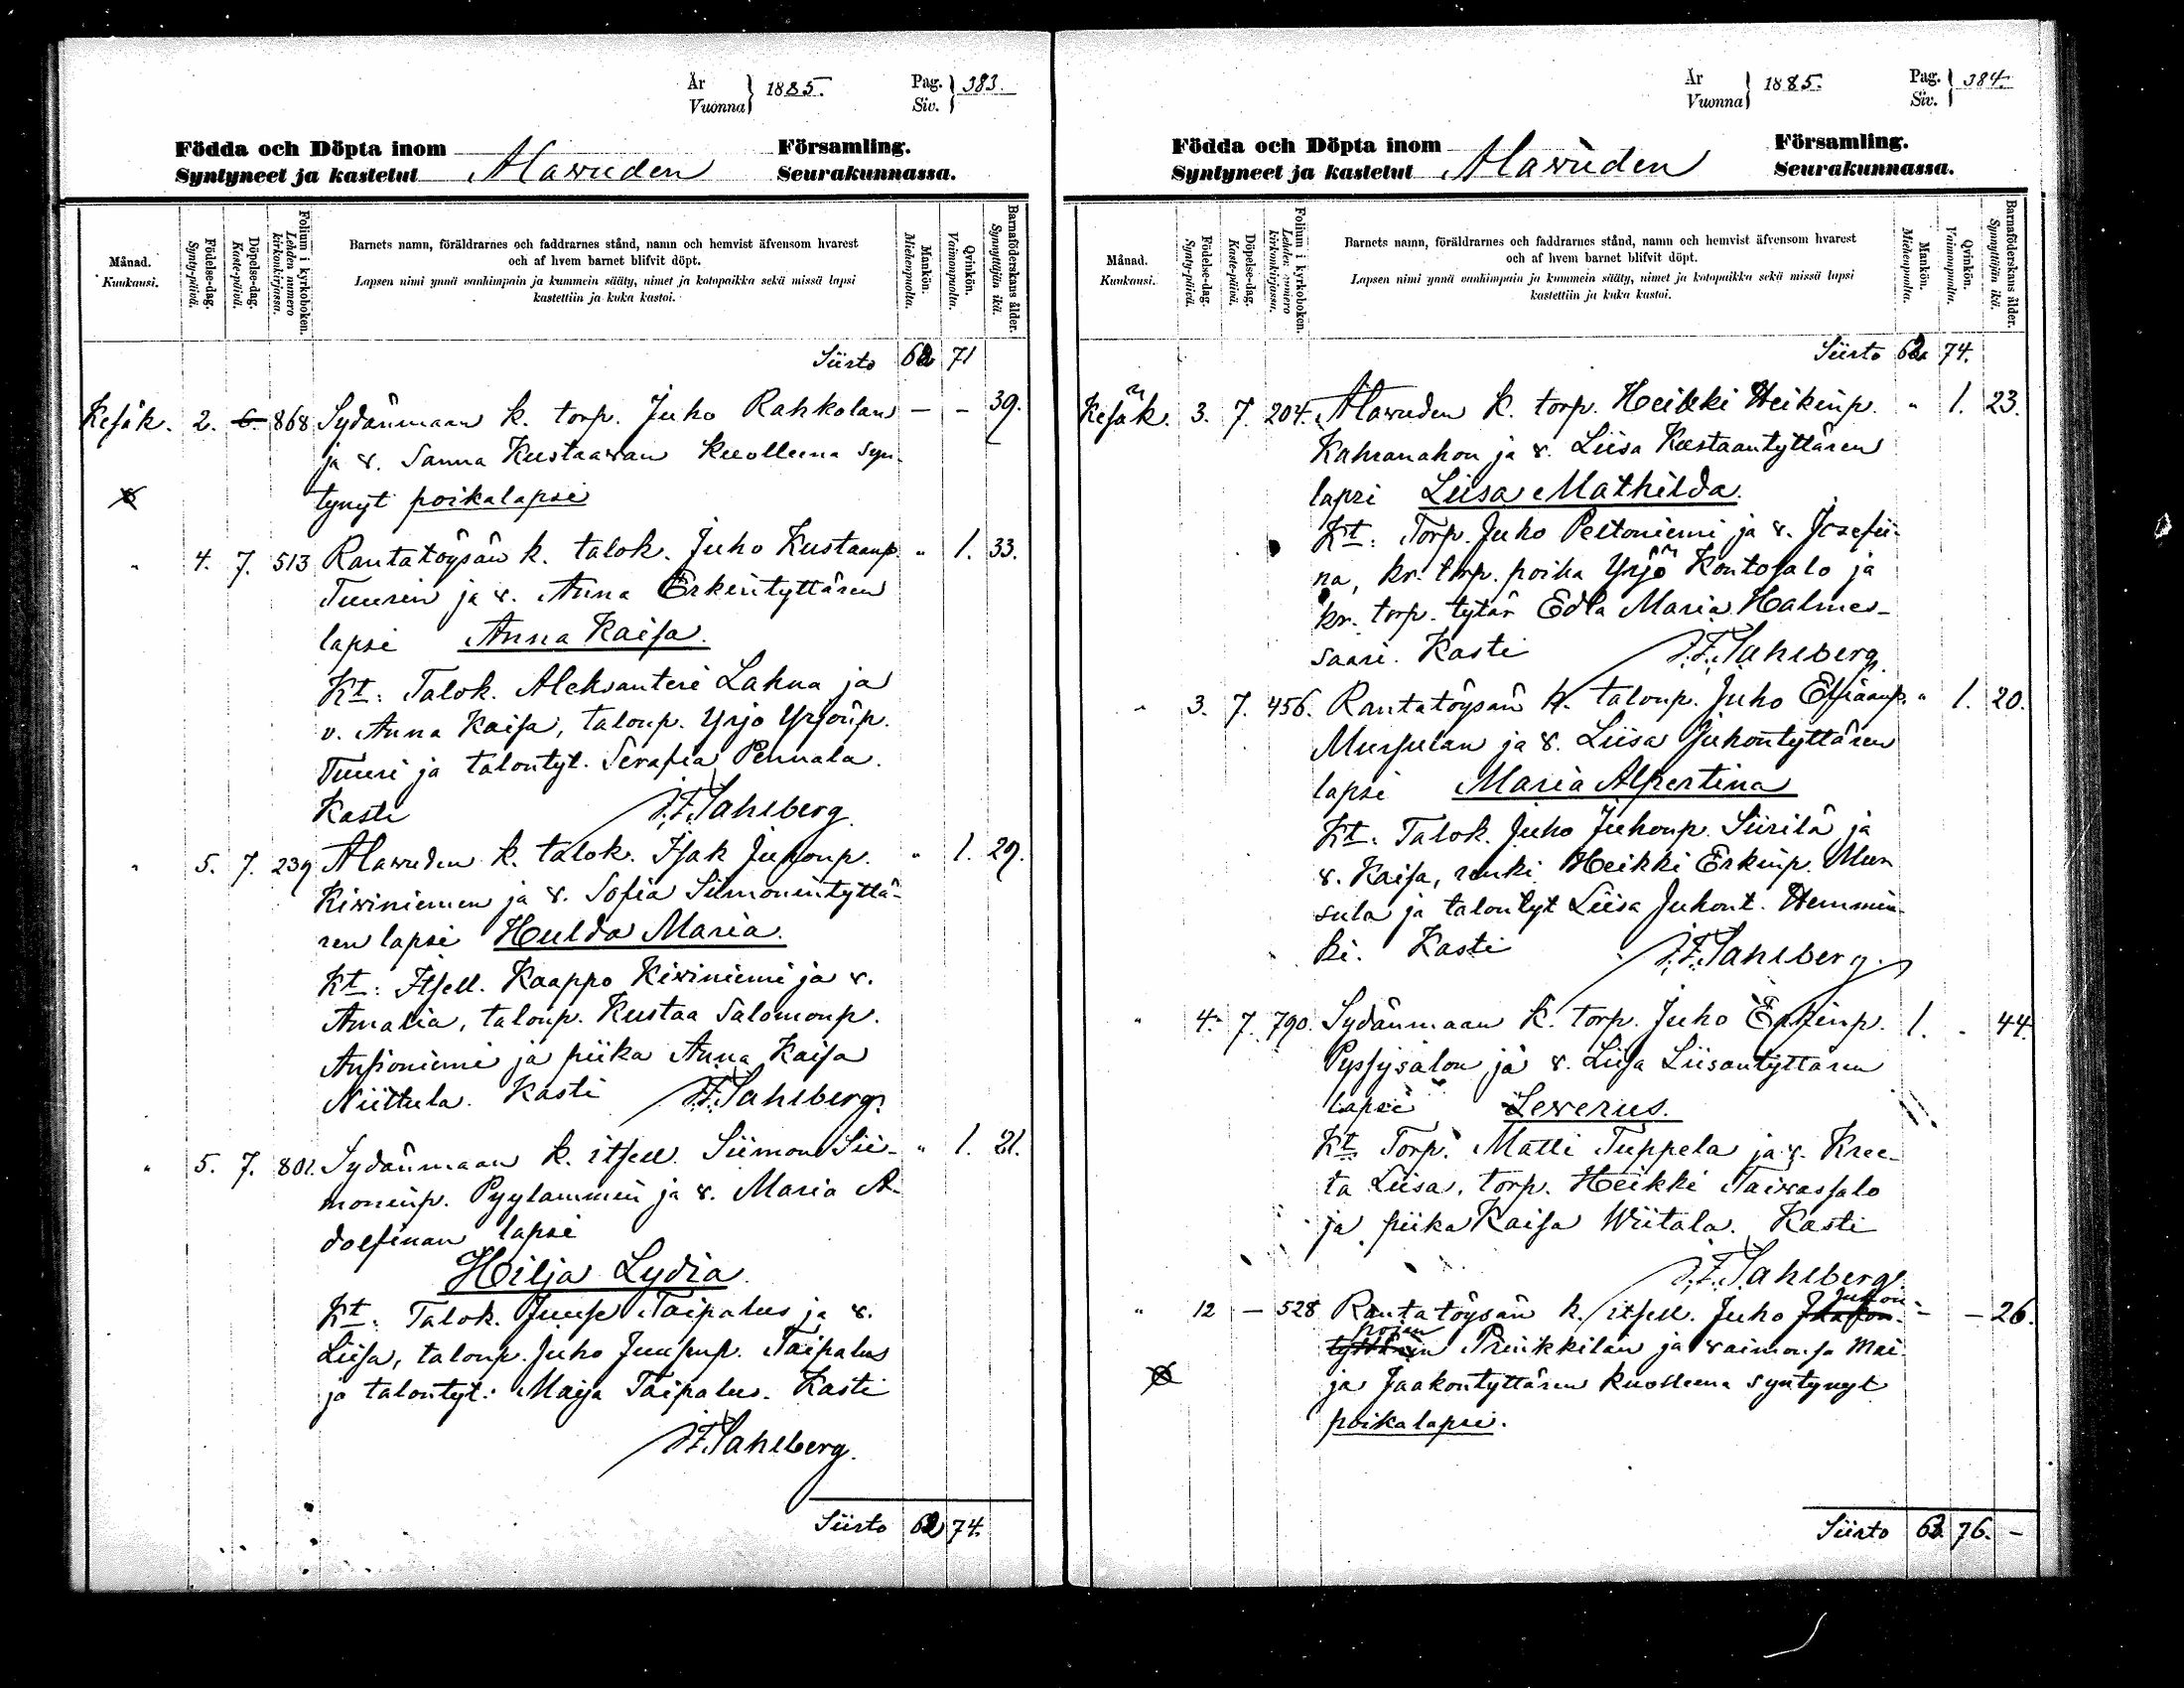 År
Vuonna } 1885. Pag.
Siv. } 383.
Födda och Döpta inom Församling.
Syntyneet ja kastetut Alawuden Seurakunnassa.
Månad.
Kuukausi.
Födelse-dag.
Synty-päivä.
Döpelse-dag.
Kaste-päivä.
Folium i kyrkoboken.
Lehden numero
kirkonkirjassa.
Barnets namn, föräldrarnes och faddrarnes stånd, namn och hemvist äfvensom hvarest
och af hvem barnet blifvit döpt.
Lapsen nimi ynnä vanhimpain ja kummein sääty, nimet ja kotopaikka sekä missä lapsi
kastettiin ja kuka kastoi.
Mankön.
Miehenpuolta.
Qvinkön.
Vaimonpuolta.
Barnaföderskans ålder.
Synnyttäjän ikä.
Siirto 62 71
Kesäk. 2. 6. 868 Sydänmaan k. torp. Juho Rahkolan - - 39.
ja v. Sanna Kustaawan kuolleena syn-
tynyt poikalapsi
" 4. 7. 513 Rantatöysän k. talok. Juho Kustaanp. " 1. 33.
Tuurin ja v. Anna Erkintyttären
lapsi Anna Kaisa.
Kt: Talok. Aleksanteri Lahna ja
v. Anna Kaisa, talonp. Yrjö Yrjönp.
Tuuri ja talontyt. Serafia Pennala.
Kasti J.F. Sahlberg.
" 5. 7. 239 Alawuden k. talok. Isak Juhonp. " 1. 29.
Kiviniemen ja v. Sofia Siimonintyttä-
ren lapsi Hulda Maria.
Kt: Itsell. Kaappo Kiviniemi ja v.
Amalia, talonp. Kustaa Salomonp.
Ansioniemi ja piika Anna Kaisa
Niittula. Kasti J.F. Sahlberg.
" 5. 7. 801. Sydänmaan k. itsell. Siimon Sii- " 1. 21.
moninp. Pyylammin ja v. Maria A-
dolfinan lapsi
Hilja Lydia.
Kt: Talok. Juuse Taipalus ja v.
Liisa, talonp. Juho Juusenp. Taipalus
ja talontyt. Maija Taipalus. Kasti
J.F. Sahlberg.
Siirto 62 74.
År
Vuonna } 1885. Pag.
Siv. } 384.
Födda och Döpta inom Församling.
Syntyneet ja kastetut Alawuden Seurakunnassa.
Månad.
Kuukausi.
Födelse-dag.
Synty-päivä.
Döpelse-dag.
Kaste-päivä.
Folium i kyrkoboken.
Lehden numero
kirkonkirjassa.
Barnets namn, föräldrarnes och faddrarnes stånd, namn och hemvist äfvensom hvarest
och af hvem barnet blifvit döpt.
Lapsen nimi ynnä vanhimpain ja kummein sääty, nimet ja kotopaikka sekä missä lapsi
kastettiin ja kuka kastoi.
Mankön.
Miehenpuolta.
Qvinkön.
Vaimonpuolta.
Barnaföderskans ålder.
Synnyttäjän ikä.
Siirto 62 74.
Kesäk. 3. 7. 204. Alawuden k. torp. Heikki Heikinp. " 1. 23.
Kahranahon ja v. Liisa Kustaantyttären
lapsi Liisa Mathilda.
Kt: Torp. Juho Peltoniemi ja v. Josefii-
na, kr. torp. poika Yrjö Kontosalo ja
kr. torp. tytär Edla Maria Halmes-
saari. Kasti J.F. Sahlberg.
" 3. 7. 456. Rantatöysän k. talonp. Juho Esiäanp. " 1. 20.
Mursulan ja v. Liisa Juhontyttären
lapsi Maria Alpertina
Kt: Talok. Juho Juhonp. Siirilä ja
v. Kaisa, renki Heikki Erkinp. Mur
sula ja talontyt Liisa Juhont. Hemmin-
ki. Kasti J.F. Sahlberg.
" 4. 7. 790. Sydänmaan k. torp. Juho Erkinp. 1. " 44.
Pyssysalon ja v. Liisa Liisantyttären
lapsi Sewerus.
Kt: Torp. Matti Tuppela ja v. Kree-
ta Liisa, torp. Heikki Taivassalo
ja piika Kaisa Wiitala. Kasti
J.F. Sahlberg.
" 12 - 528 Rantatöysän k. itsell. Juho Jaakon Juhon- - - 26.
tyttären pojan Prinkkilän ja vaimonsa Mai-
ja Jaakontyttären kuolleena syntynyt
poikalapsi.
Siirto 63. 76. -